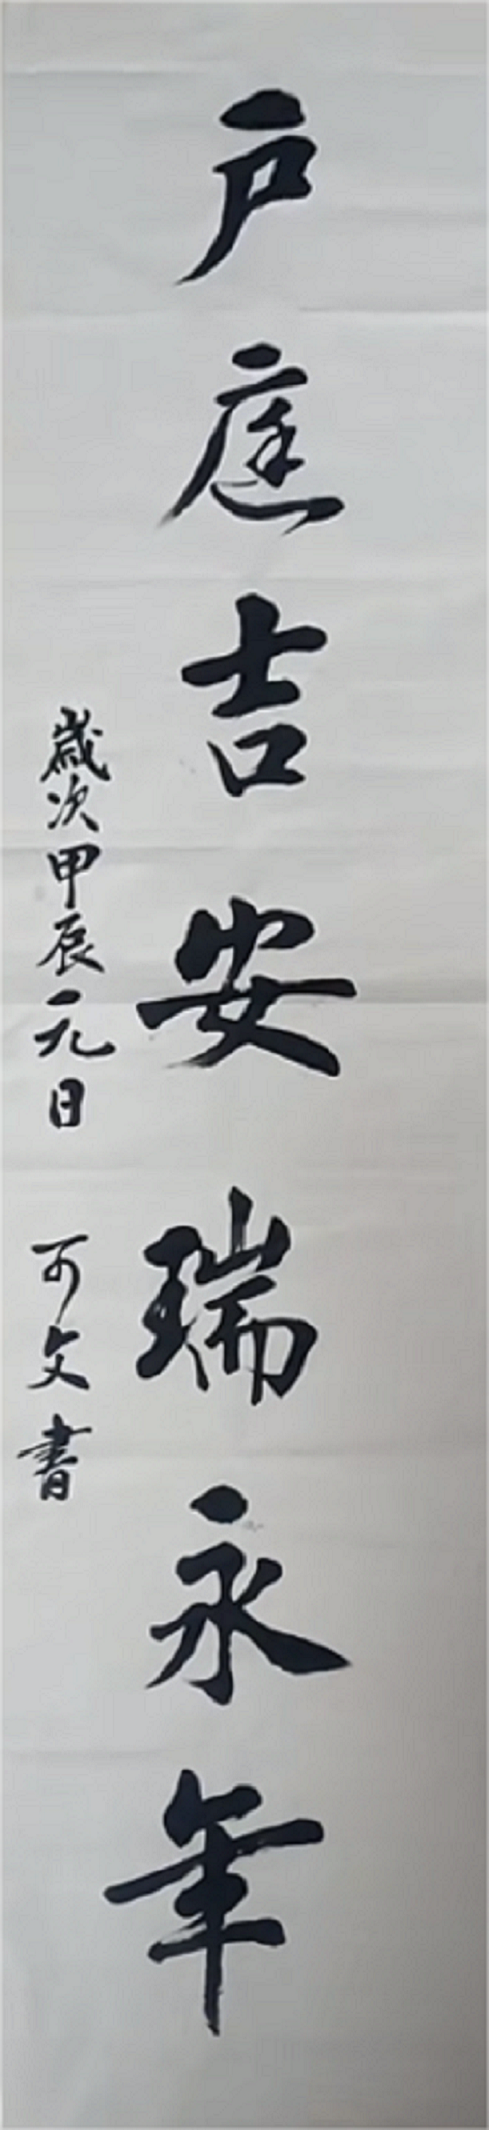 戶庭吉安瑞永年
歲次甲辰元日
可文書